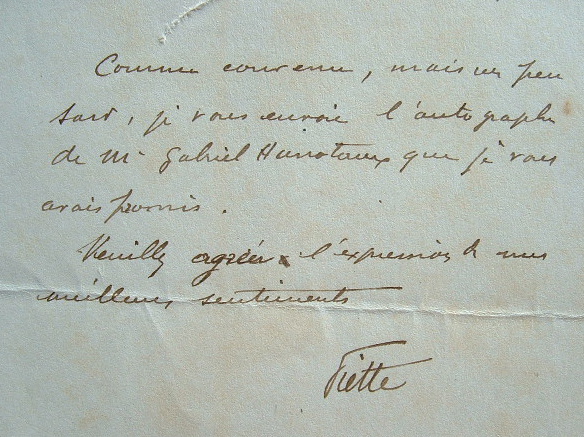 Comme convenu, mais un peu
tard, je vous envoie l'autographe
de Mr Gabriel Hanotaux que je vous
avais promis.
Veuillez agréer l'expression de mes
meilleurs sentiments